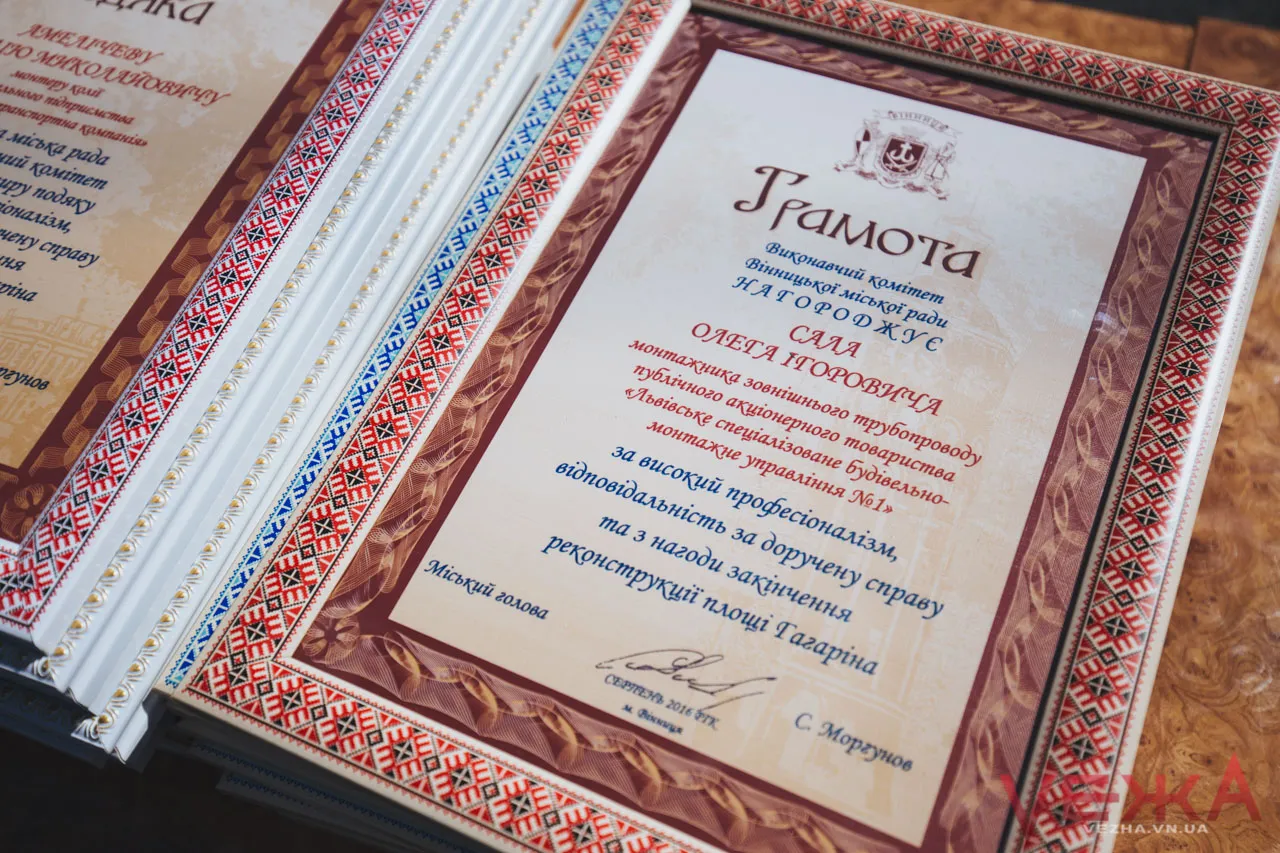 АМЕЛІЧЕВУ
МИКОЛАЙОВИЧУ
монтеру колії
підприємства
транспортна компанія»
міська рада
комітет
подяку
справу
ВІННИЦЯ
Грамота
Виконавчий комітет
Вінницької міської ради
НАГОРОДЖУЄ
САЛА
ОЛЕГА ІГОРОВИЧА
монтажника зовнішнього трубопроводу
публічного акціонерного товариства
«Львівське спеціалізоване будівельно-
монтажне управління №1»
за високий професіоналізм,
відповідальність за доручену справу
та з нагоди закінчення
реконструкції площі Гагаріна
Міський голова
С. Моргунов
СЕРПЕНЬ 2016 РІК
м. Вінниця
VЕЖА
VEZHA.VN.UA